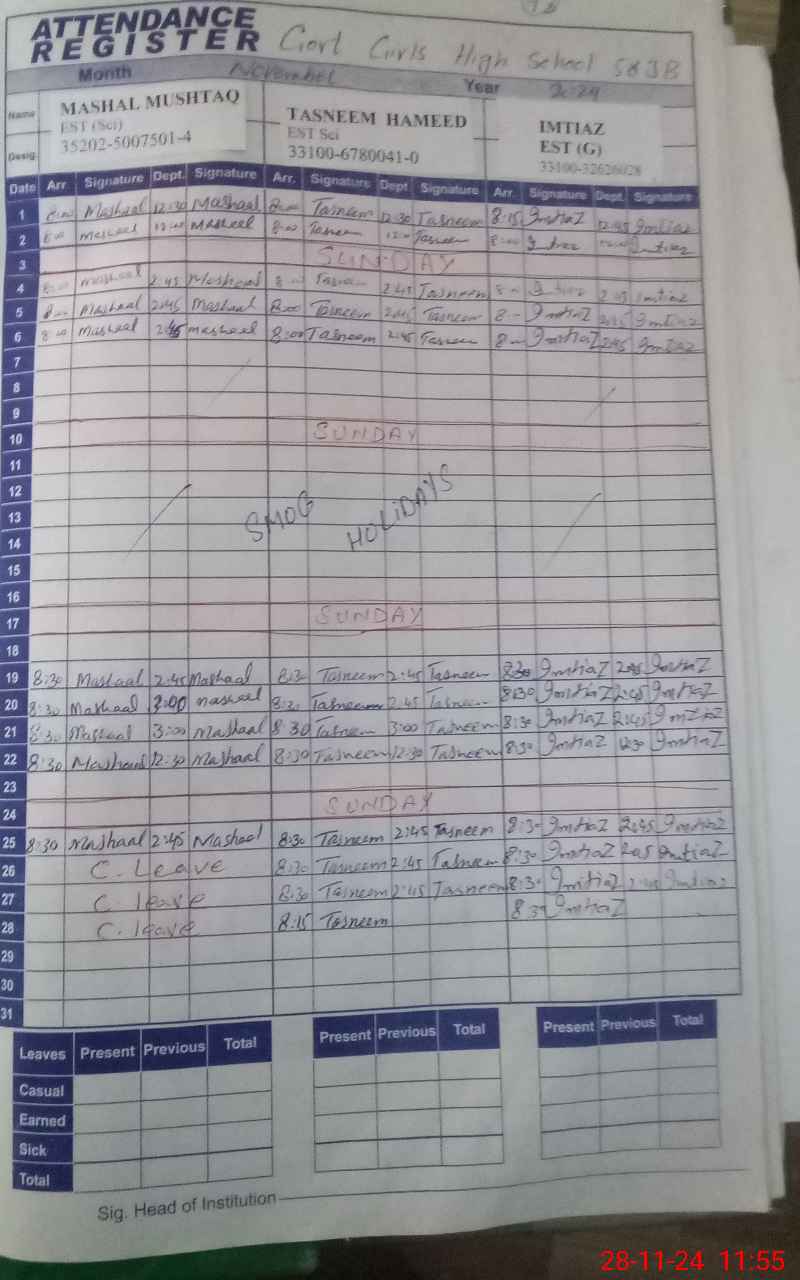 ATTENDANCE
REGISTER Govt Girls High School 58 JB
Month November Year 2024
Name MASHAL MUSHTAQ TASNEEM HAMEED IMTIAZ
Desig. EST (Sci) EST Sci EST (G)
35202-5007501-4 33100-6780041-0 33100-32626028
Date Arr. Signature Dept. Signature Arr. Signature Dept Signature Arr. Signature Dept. Signature
1 8:00 Mashaal 12:30 Mashaal 8:00 Tasneem 12:30 Tasneem 8:15 Imtiaz 12:45 Imtiaz
2 8:00 Mashaal Mashaal 8:00 Tasneem Tasneem 8:00 Imtiaz Imtiaz
3 SUNDAY
4 8:00 Mashaal 2:45 Mashaal 8 - Tasneem 2:45 Tasneem 8 - Imtiaz 2:45 Imtiaz
5 8:00 Mashaal 2:45 Mashaal 8:00 Tasneem 2:45 Tasneem 8 - Imtiaz 2:45 Imtiaz
6 8:00 Mashaal 2:45 Mashaal 8:00 Tasneem 2:45 Tasneem 8 - Imtiaz 2:45 Imtiaz
7
8
9
10 SUNDAY
11
12
13 SMOG HOLiDAYS
14
15
16
17 SUNDAY
18
19 8:30 Mashaal 2:45 Mashaal 8:30 Tasneem 2:45 Tasneem 8:30 Imtiaz 2:45 Imtiaz
20 8:30 Mashaal 3:00 Mashaal 8:30 Tasneem 2:45 Tasneem 8:30 Imtiaz 2:45 Imtiaz
21 8:30 Mashaal 3:00 Mashaal 8:30 Tasneem 3:00 Tasneem 8:30 Imtiaz 2:45 Imtiaz
22 8:30 Mashaal 12:30 Mashaal 8:30 Tasneem 12:30 Tasneem 8:30 Imtiaz 12:30 Imtiaz
23
24 SUNDAY
25 8:30 Mashaal 2:45 Mashaal 8:30 Tasneem 2:45 Tasneem 8:30 Imtiaz 2:45 Imtiaz
26 C. Leave 8:30 Tasneem 2:45 Tasneem 8:30 Imtiaz 2:45 Imtiaz
27 C. leave 8:30 Tasneem 2:45 Tasneem 8:30 Imtiaz 2:45 Imtiaz
28 C. leave 8:15 Tasneem 8:30 Imtiaz
29
30
31
Leaves Present Previous Total Present Previous Total Present Previous Total
Casual
Earned
Sick
Total
Sig. Head of Institution
28-11-24 11:55